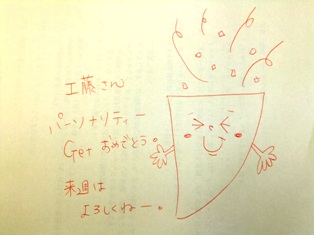 工藤さん
パーソナリティー
Get おめでとう。
来週は
よろしくねー。